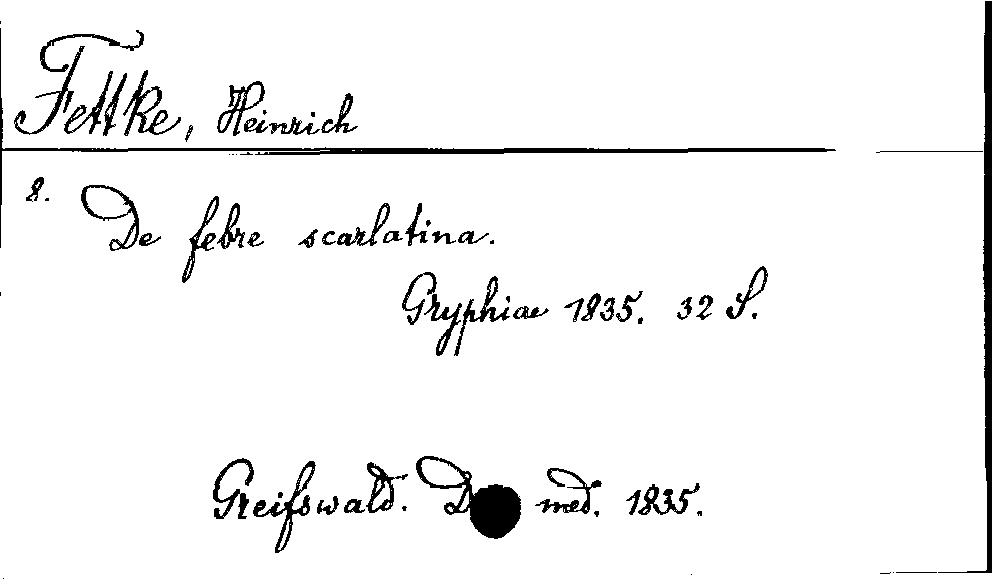 Fettke, Heinrich
8.
De febre scarlatina.
Gryphiae 1835. 32 S.
Greifswald. D med. 1835.